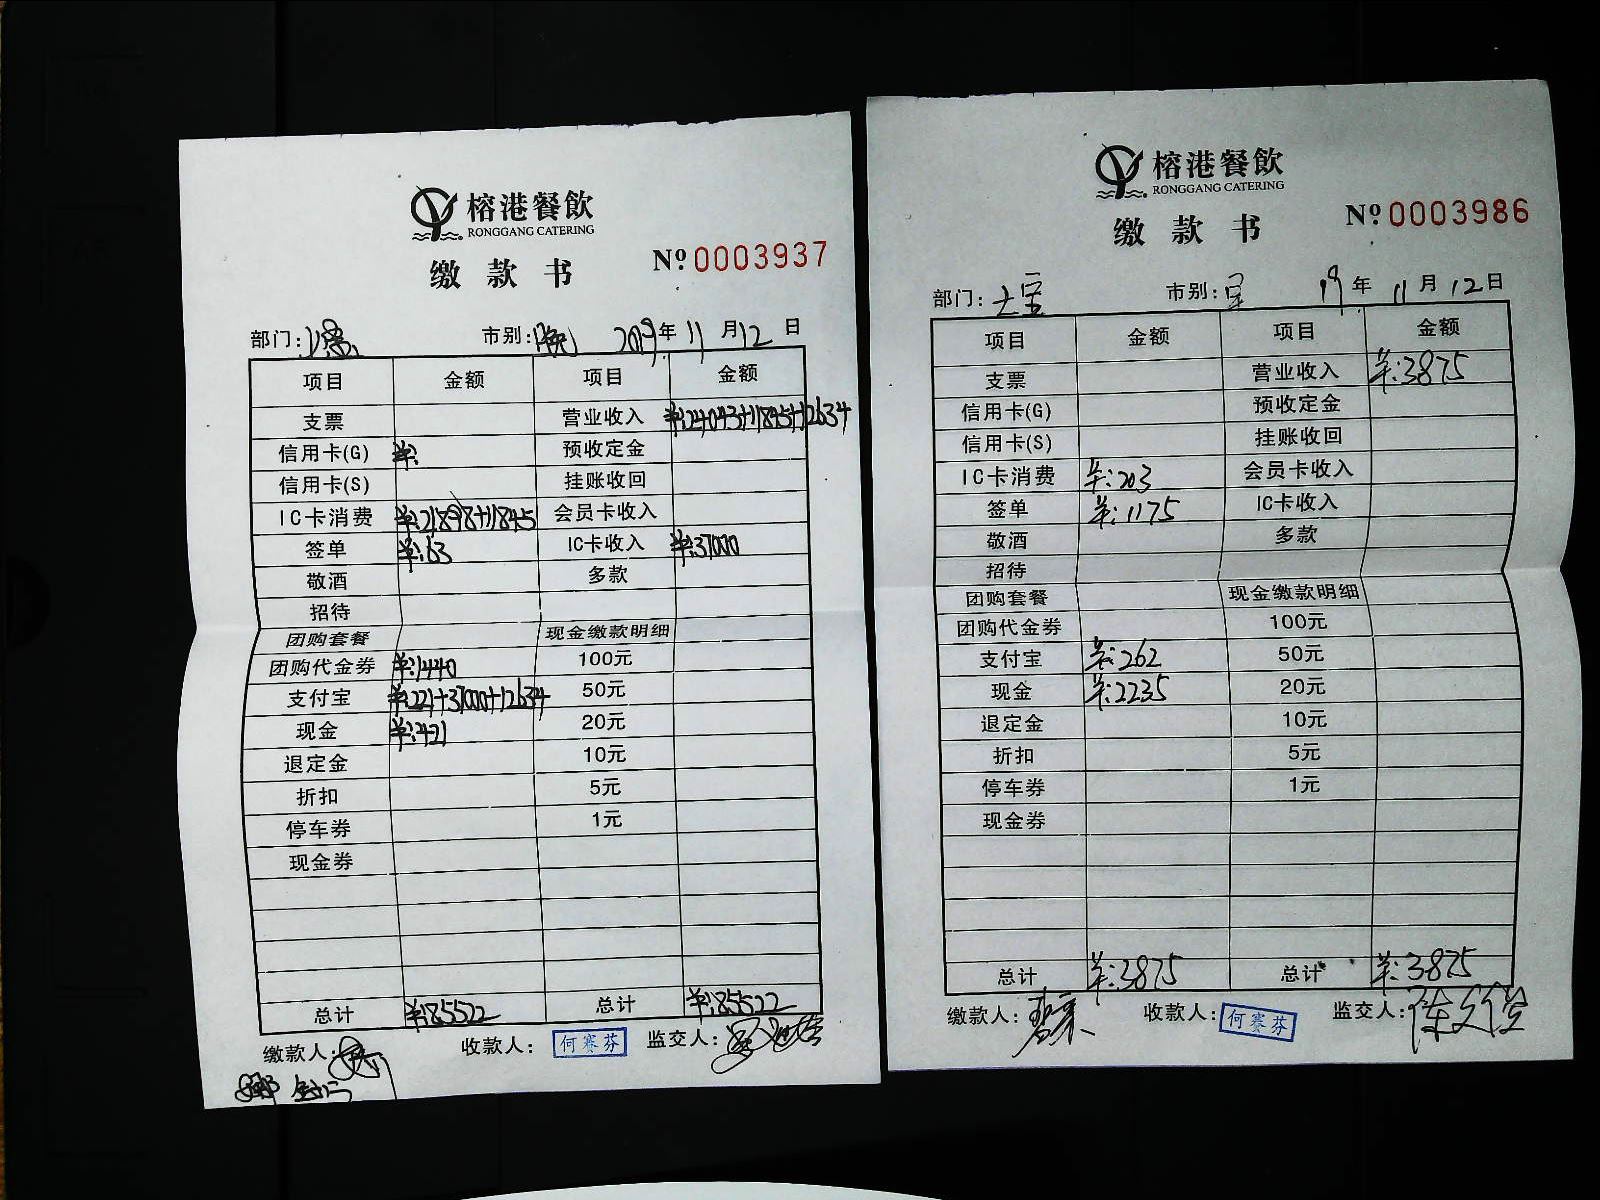 榕港餐飲
RONGGANG CATERING
缴款书
№ 0003937
部门: 市别:晚 2019年11月12日
项目 金额 项目 金额
支票 营业收入 ¥:24043+11845+12634
信用卡(G) ¥: 预收定金
信用卡(S) 挂账收回
IC卡消费 ¥:21898+11845 会员卡收入
签单 ¥:63 IC卡收入 ¥:37000
敬酒 多款
招待
团购套餐 现金缴款明细
团购代金券 ¥:1440 100元
支付宝 ¥:221+37000+12634 50元
现金 ¥:421 20元
退定金 10元
折扣 5元
停车券 1元
现金券
总计 ¥:85522 总计 ¥:85522
缴款人: 收款人: 何赛芬 监交人:
榕港餐飲
RONGGANG CATERING
缴款书
№ 0003986
部门: 大宝 市别: 19年11月12日
项目 金额 项目 金额
支票 营业收入 ¥:3875
信用卡(G) 预收定金
信用卡(S) 挂账收回
IC卡消费 ¥:203 会员卡收入
签单 ¥:1175 IC卡收入
敬酒 多款
招待
团购套餐 现金缴款明细
团购代金券 100元
支付宝 ¥:262 50元
现金 ¥:2235 20元
退定金 10元
折扣 5元
停车券 1元
现金券
总计 ¥:3875 总计 ¥:3875
缴款人: 收款人: 何赛芬 监交人: